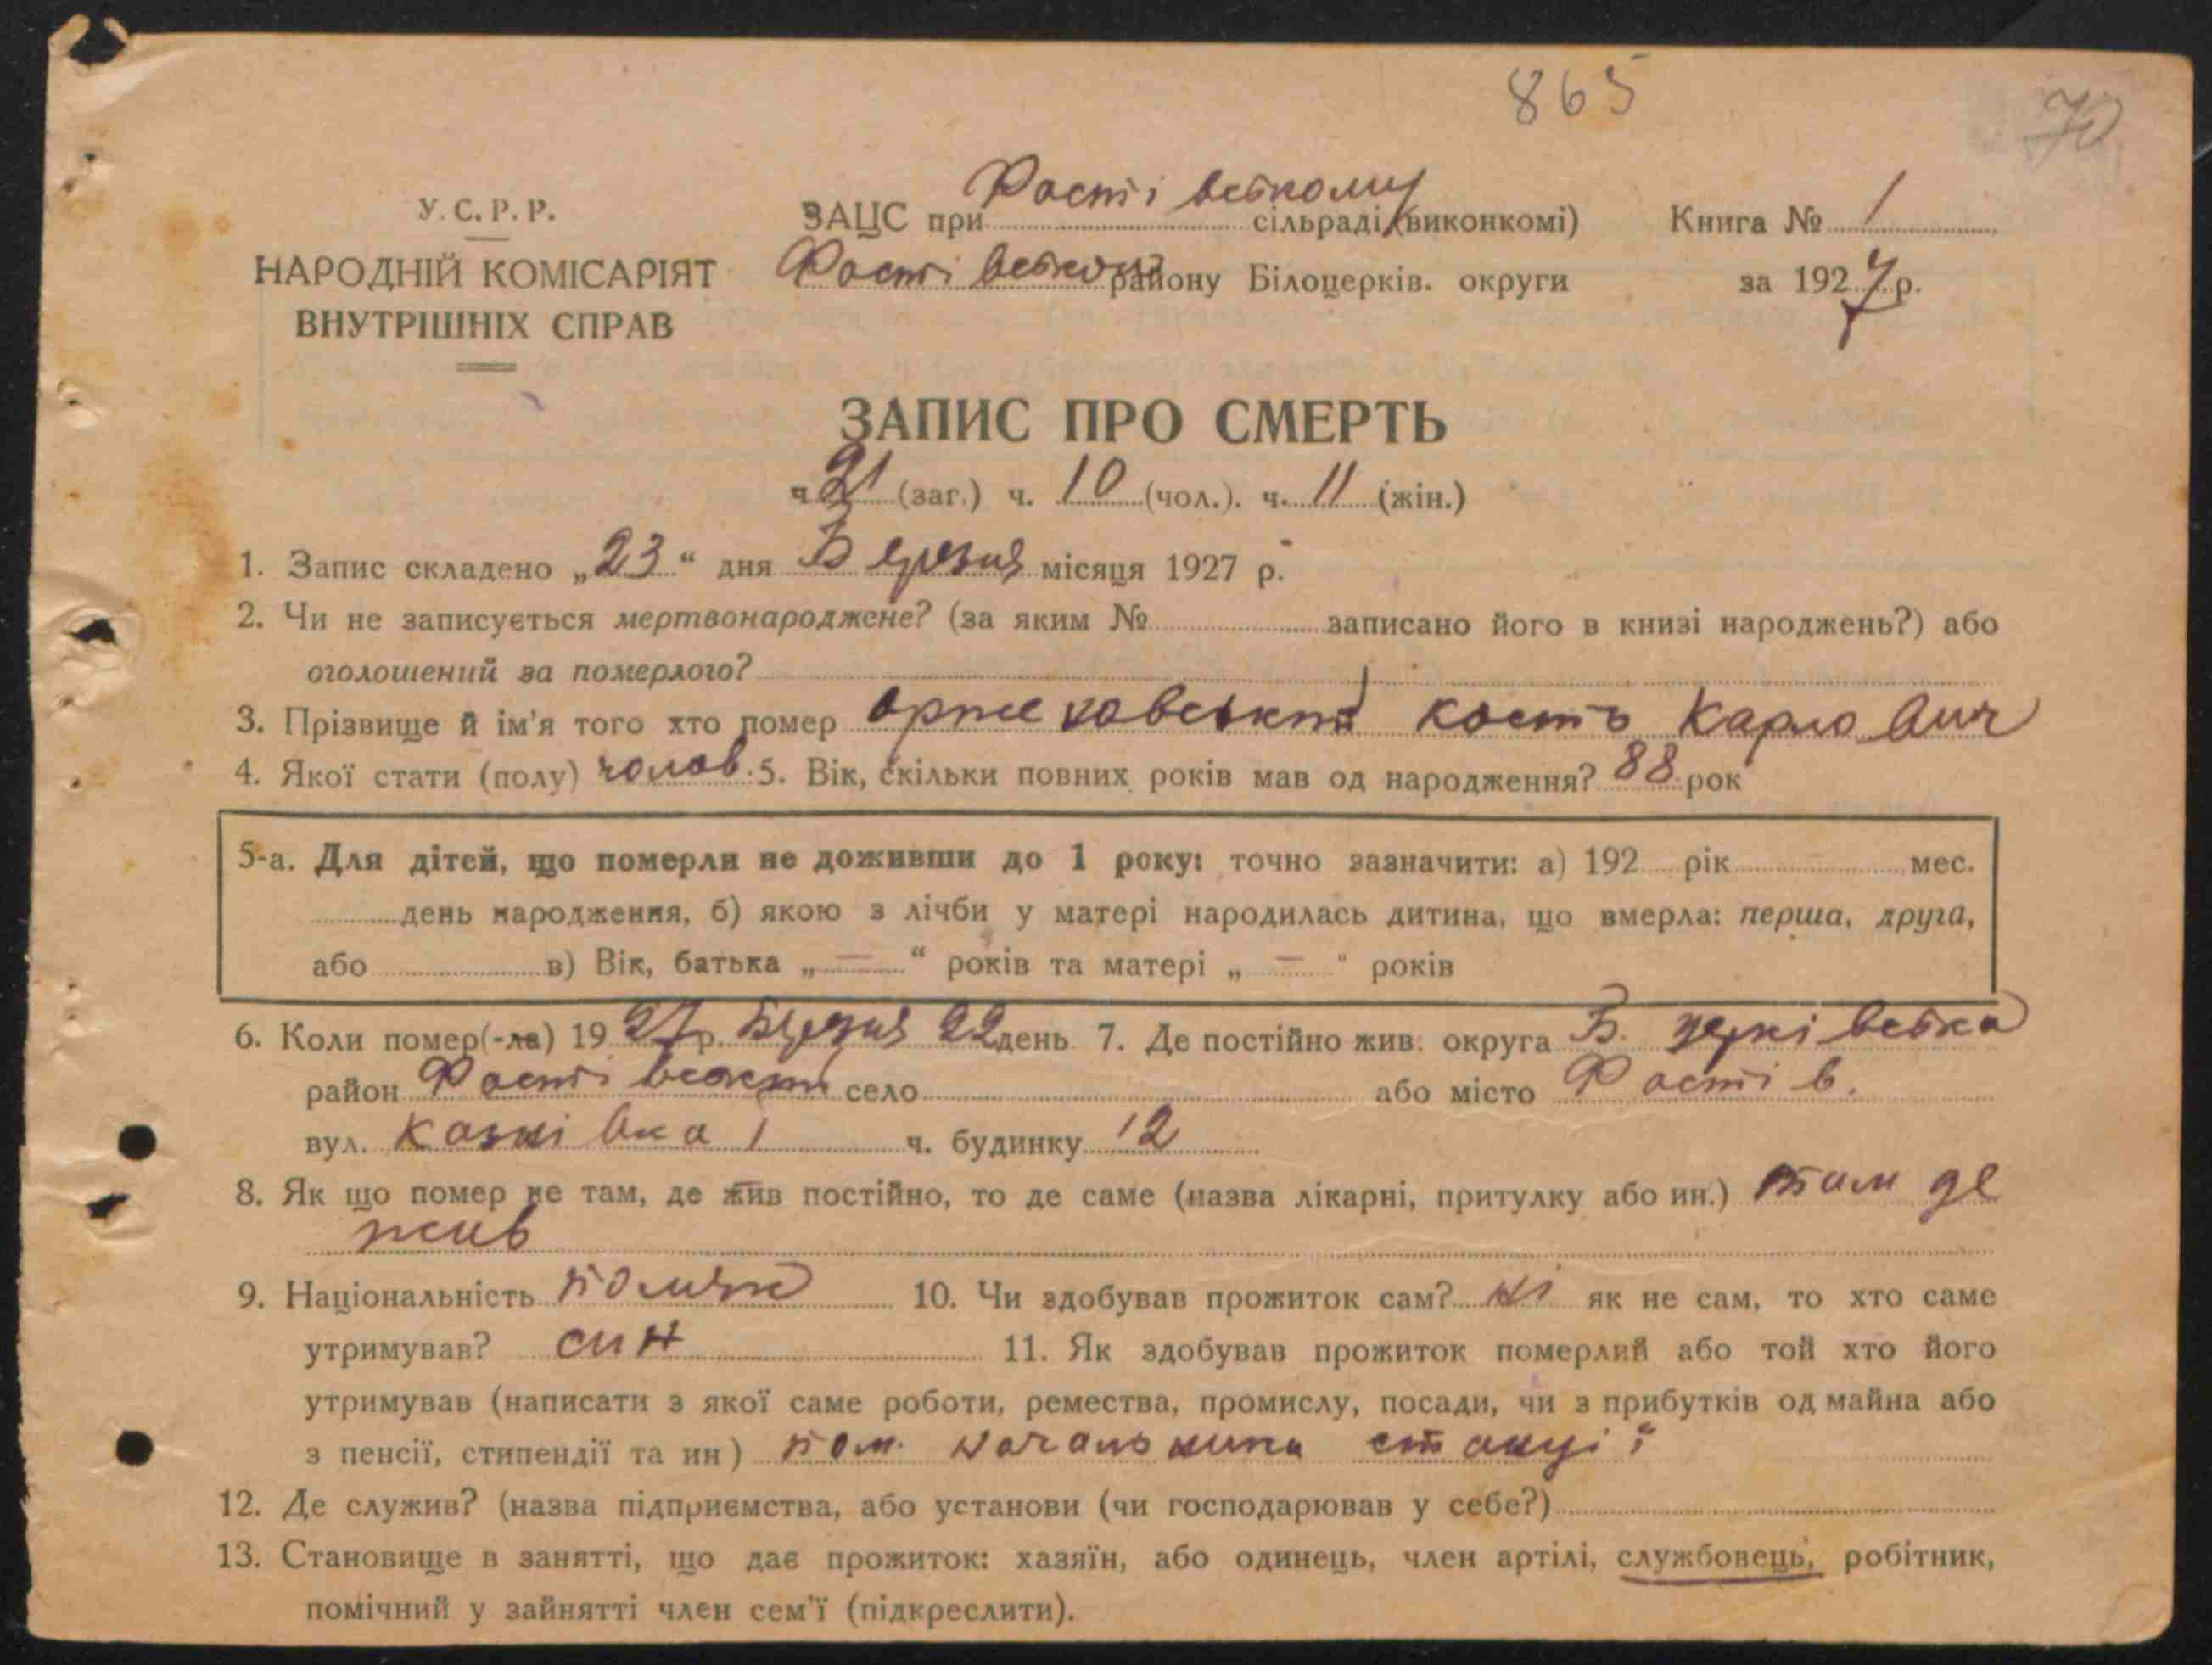 865
70
У. С. Р. Р.
НАРОДНІЙ КОМІСАРІЯТ
ВНУТРІШНІХ СПРАВ
ЗАЦС при Фастівському сільраді (виконкомі)
Фастівському району Білоцерків. округи
Книга № 1
за 1927 р.
ЗАПИС ПРО СМЕРТЬ
ч. 21 (заг.) ч. 10 (чол.). ч. 11 (жін.)
1. Запис складено „23“ дня Березня місяця 1927 р.
2. Чи не записується мертвонароджене? (за яким № записано його в книзі народжень?) або
оголошений за померлого?
3. Прізвище й ім'я того хто помер Кость Карлович
4. Якої стати (полу) чолов. 5. Вік, скільки повних років мав од народження? 88 рок
5-а. Для дітей, що померли не доживши до 1 року: точно зазначити: а) 192 рік мес.
день народження, б) якою з лічби у матері народилась дитина, що вмерла: перша, друга,
або в) Вік, батька „ — “ років та матері „ — “ років
6. Коли помер(-ла) 1927 р. Березня 22 день 7. Де постійно жив: округа Б. церківська
район Фастівський село або місто Фастів.
вул. Казнівка 1 ч. будинку 12
8. Як що помер не там, де жив постійно, то де саме (назва лікарні, притулку або ин.) там де
жив
9. Національність поляк 10. Чи здобував прожиток сам? ні як не сам, то хто саме
утримував? син 11. Як здобував прожиток померлий або той хто його
утримував (написати з якої саме роботи, ремества, промислу, посади, чи з прибутків од майна або
з пенсії, стипендії та ин) пом. начальника станції
12. Де служив? (назва підприємства, або установи (чи господарював у себе?)
13. Становище в занятті, що дає прожиток: хазяїн, або одинець, член артілі, службовець, робітник,
помічний у зайнятті член сем'ї (підкреслити).